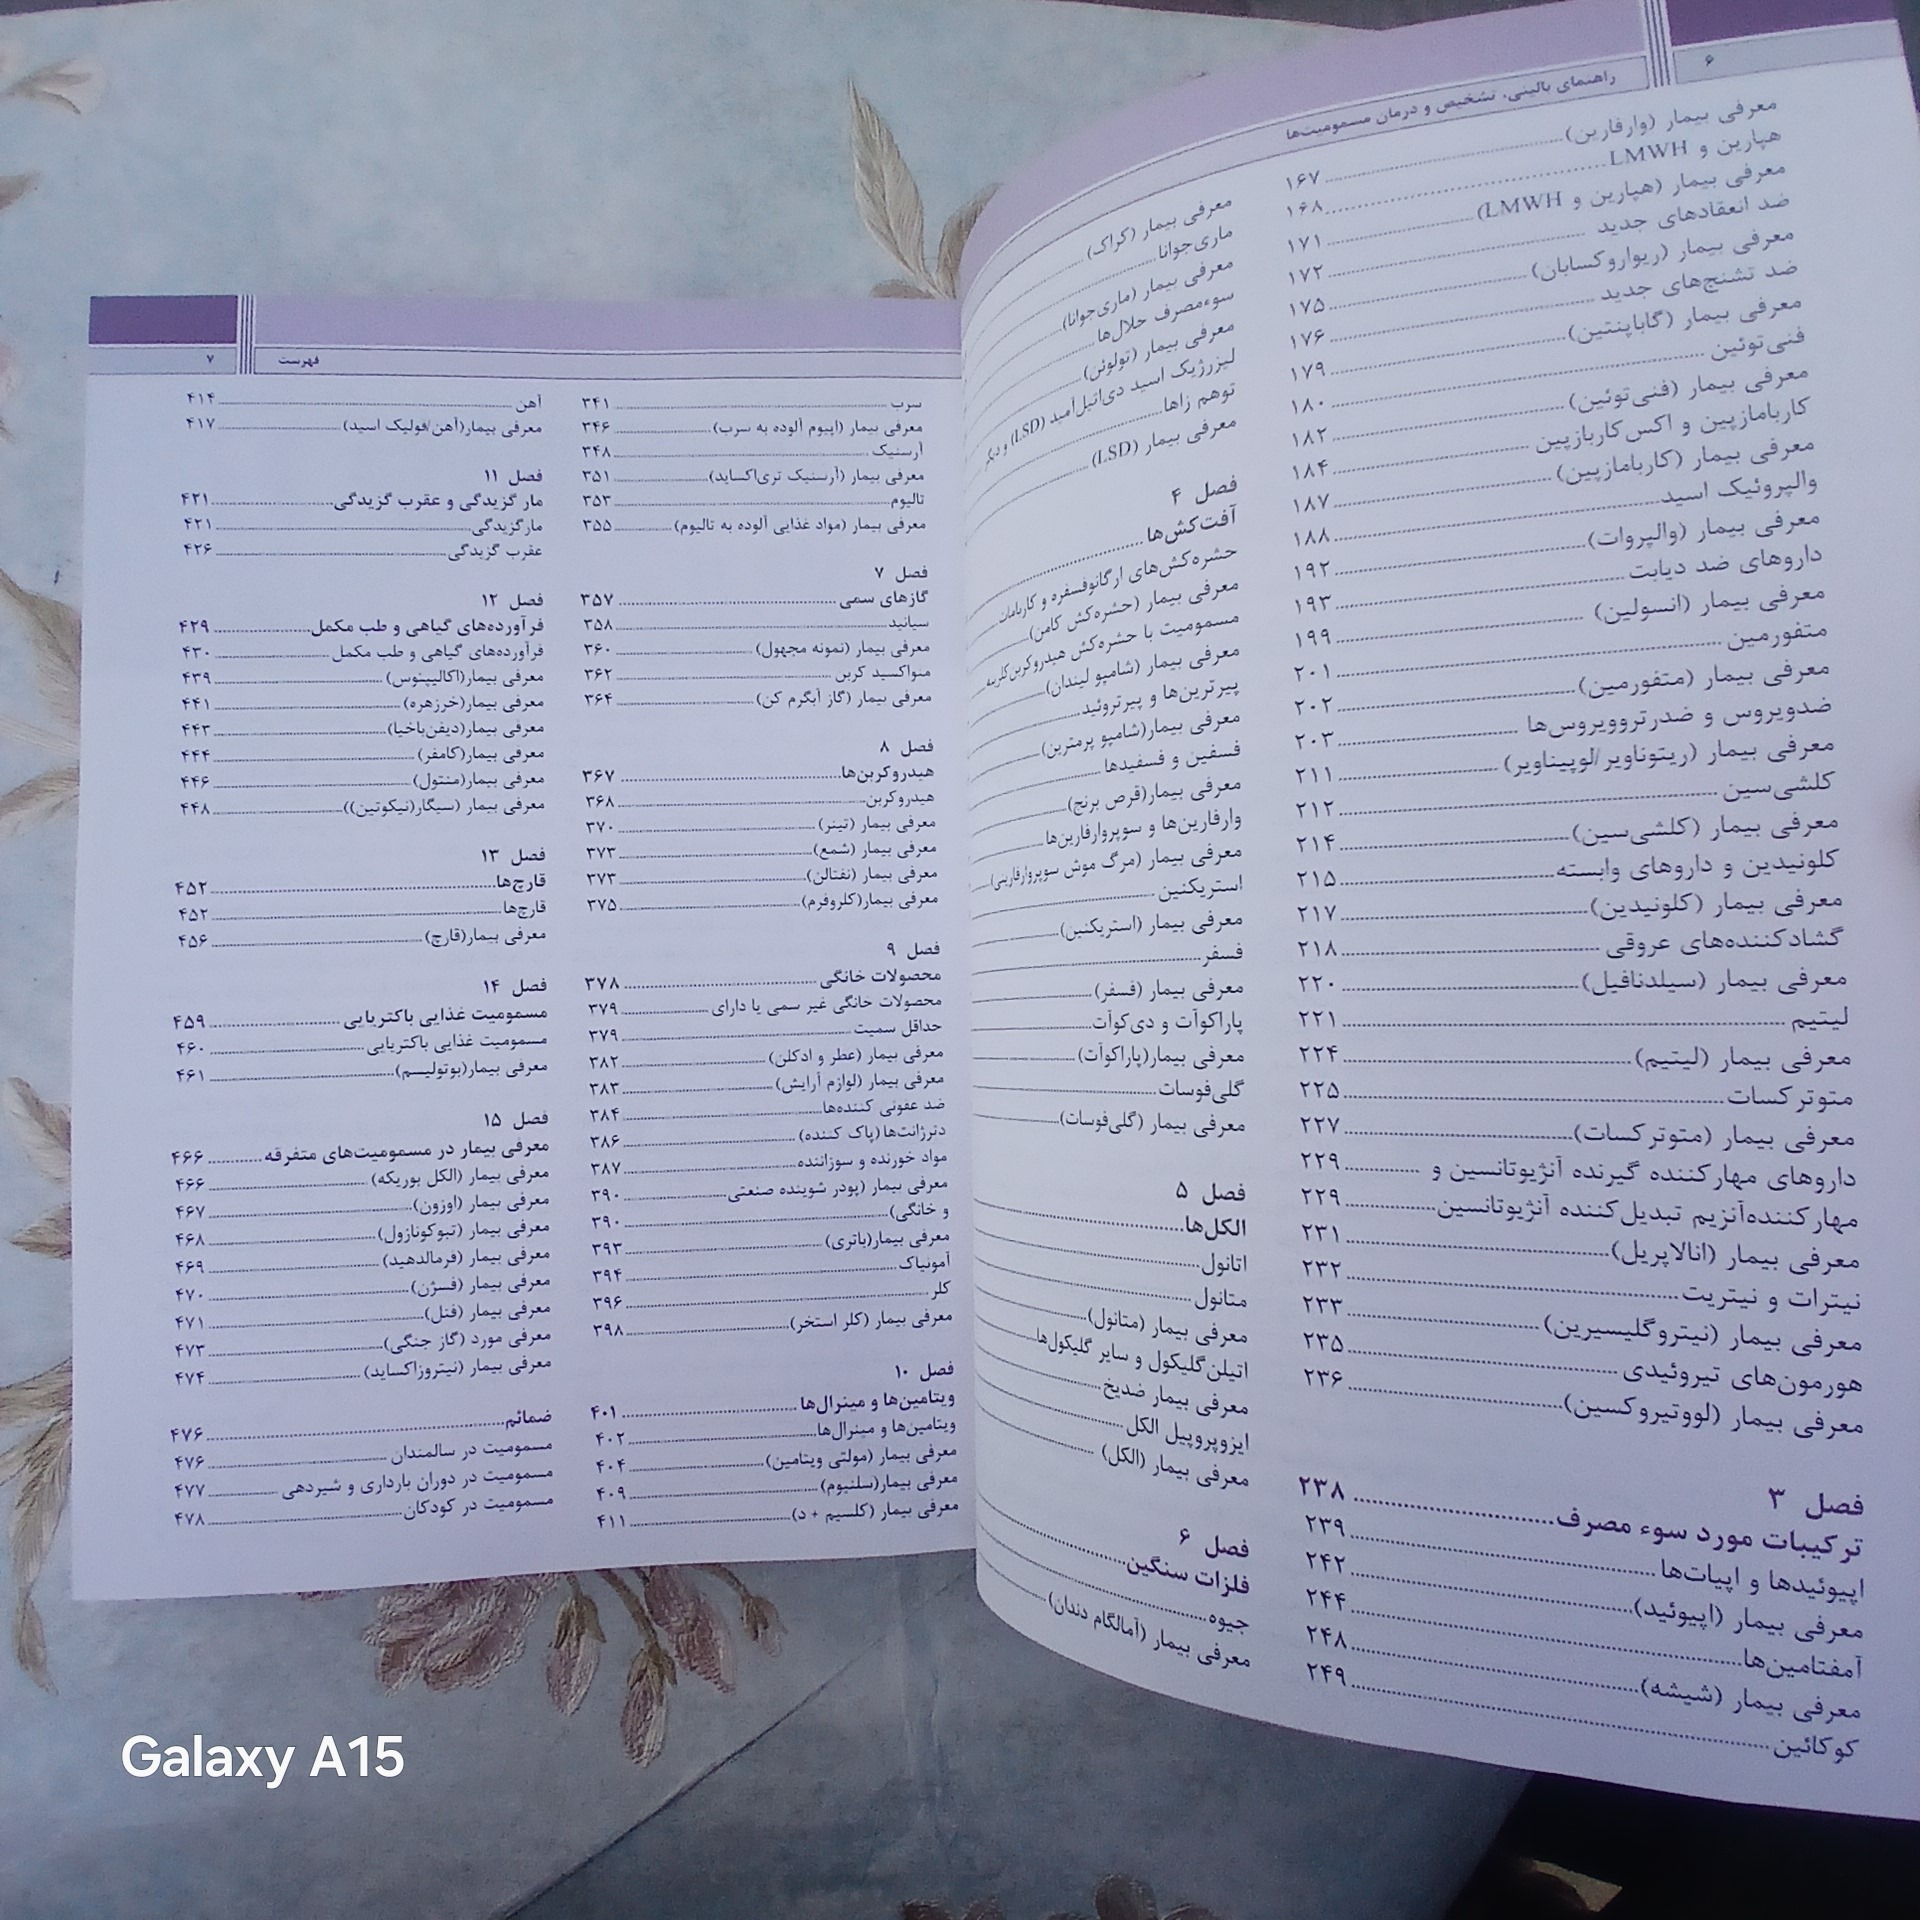 ۶
راهنمای بالینی، تشخیص و درمان مسمومیت‌ها
معرفی بیمار (وارفارین) ۱۶۷
هپارین و LMWH ۱۶۸
معرفی بیمار (هپارین و LMWH) ۱۷۱
ضد انعقادهای جدید ۱۷۲
معرفی بیمار (ریواروکسابان) ۱۷۵
ضد تشنج‌های جدید ۱۷۶
معرفی بیمار (گاباپنتین) ۱۷۹
فنی‌توئین ۱۸۰
معرفی بیمار (فنی‌توئین) ۱۸۲
کاربامازپین و اکس‌کاربازپین ۱۸۴
معرفی بیمار (کاربامازپین) ۱۸۷
والپروئیک اسید ۱۸۸
معرفی بیمار (والپروات) ۱۹۲
داروهای ضد دیابت ۱۹۳
معرفی بیمار (انسولین) ۱۹۹
متفورمین ۲۰۱
معرفی بیمار (متفورمین) ۲۰۲
ضدویروس و ضدرتروویروس‌ها ۲۰۳
معرفی بیمار (ریتوناویر/لوپیناویر) ۲۱۱
کلشی‌سین ۲۱۲
معرفی بیمار (کلشی‌سین) ۲۱۴
کلونیدین و داروهای وابسته ۲۱۵
معرفی بیمار (کلونیدین) ۲۱۷
گشادکننده‌های عروقی ۲۱۸
معرفی بیمار (سیلدنافیل) ۲۲۰
لیتیم ۲۲۱
معرفی بیمار (لیتیم) ۲۲۴
متوترکسات ۲۲۵
معرفی بیمار (متوترکسات) ۲۲۷
داروهای مهارکننده گیرنده آنژیوتانسین و ۲۲۹
مهارکننده‌آنزیم تبدیل‌کننده آنژیوتانسین ۲۲۹
معرفی بیمار (انالاپریل) ۲۳۱
نیترات و نیتریت ۲۳۲
معرفی بیمار (نیتروگلیسیرین) ۲۳۳
هورمون‌های تیروئیدی ۲۳۵
معرفی بیمار (لووتیروکسین) ۲۳۶
فصل ۳
ترکیبات مورد سوء مصرف ۲۳۸
اپیوئیدها و اپیات‌ها ۲۳۹
معرفی بیمار (اپیوئید) ۲۴۲
آمفتامین‌ها ۲۴۴
معرفی بیمار (شیشه) ۲۴۸
کوکائین ۲۴۹
معرفی بیمار (کراک)
ماری‌جوانا
معرفی بیمار (ماری‌جوانا)
سوءمصرف حلال‌ها
معرفی بیمار (تولوئن)
لیزرژیک اسید دی‌اتیل‌آمید (LSD) و دیگر
توهم زاها
معرفی بیمار (LSD)
فصل ۴
آفت‌کش‌ها
حشره‌کش‌های ارگانوفسفره و کاربامات
معرفی بیمار (حشره‌کش کامن)
مسمومیت با حشره‌کش هیدروکربن‌کلرینه
معرفی بیمار (شامپو لیندان)
پیرترین‌ها و پیرتروئید
معرفی بیمار(شامپو پرمترین)
فسفین و فسفیدها
معرفی بیمار(قرص برنج)
وارفارین‌ها و سوپروارفارین‌ها
معرفی بیمار (مرگ موش سوپروارفارینی)
استریکنین
معرفی بیمار (استریکنین)
فسفر
معرفی بیمار (فسفر)
پاراکوآت و دی‌کوآت
معرفی بیمار(پاراکوآت)
گلی‌فوسات
معرفی بیمار (گلی‌فوسات)
فصل ۵
الکل‌ها
اتانول
متانول
معرفی بیمار (متانول)
اتیلن‌گلیکول و سایر گلیکول‌ها
معرفی بیمار ضدیخ
ایزوپروپیل الکل
معرفی بیمار (الکل)
فصل ۶
فلزات سنگین
جیوه
معرفی بیمار (آمالگام دندان)
فهرست
۷
سرب ۳۴۱
معرفی بیمار (اپیوم آلوده به سرب) ۳۴۶
آرسنیک ۳۴۸
معرفی بیمار (آرسنیک تری‌اکساید) ۳۵۱
تالیوم ۳۵۳
معرفی بیمار (مواد غذایی آلوده به تالیوم) ۳۵۵
فصل ۷
گازهای سمی ۳۵۷
سیانید ۳۵۸
معرفی بیمار (نمونه مجهول) ۳۶۰
منواکسید کربن ۳۶۲
معرفی بیمار (گاز آبگرم کن) ۳۶۴
فصل ۸
هیدروکربن‌ها ۳۶۷
هیدروکربن ۳۶۸
معرفی بیمار (تینر) ۳۷۰
معرفی بیمار (شمع) ۳۷۳
معرفی بیمار (نفتالن) ۳۷۳
معرفی بیمار(کلروفرم) ۳۷۵
فصل ۹
محصولات خانگی ۳۷۸
محصولات خانگی غیر سمی یا دارای ۳۷۹
حداقل سمیت ۳۷۹
معرفی بیمار (عطر و ادکلن) ۳۸۲
معرفی بیمار (لوازم آرایش) ۳۸۳
ضد عفونی کننده‌ها ۳۸۴
دترژانت‌ها (پاک کننده) ۳۸۶
مواد خورنده و سوزاننده ۳۸۷
معرفی بیمار (پودر شوینده صنعتی ۳۹۰
و خانگی) ۳۹۰
معرفی بیمار(باتری) ۳۹۳
آمونیاک ۳۹۴
کلر ۳۹۶
معرفی بیمار (کلر استخر) ۳۹۸
فصل ۱۰
ویتامین‌ها و مینرال‌ها ۴۰۱
ویتامین‌ها و مینرال‌ها ۴۰۲
معرفی بیمار (مولتی ویتامین) ۴۰۴
معرفی بیمار(سلنیوم) ۴۰۹
معرفی بیمار (کلسیم + د) ۴۱۱
آهن ۴۱۴
معرفی بیمار(آهن/فولیک اسید) ۴۱۷
فصل ۱۱
مار گزیدگی و عقرب گزیدگی ۴۲۱
مارگزیدگی ۴۲۱
عقرب گزیدگی ۴۲۶
فصل ۱۲
فرآورده‌های گیاهی و طب مکمل ۴۲۹
فرآورده‌های گیاهی و طب مکمل ۴۳۰
معرفی بیمار(اکالیپتوس) ۴۳۹
معرفی بیمار(خرزهره) ۴۴۱
معرفی بیمار(دیفن‌باخیا) ۴۴۳
معرفی بیمار(کامفر) ۴۴۴
معرفی بیمار(منتول) ۴۴۶
معرفی بیمار (سیگار(نیکوتین)) ۴۴۸
فصل ۱۳
قارچ‌ها ۴۵۲
قارچ‌ها ۴۵۲
معرفی بیمار(قارچ) ۴۵۶
فصل ۱۴
مسمومیت غذایی باکتریایی ۴۵۹
مسمومیت غذایی باکتریایی ۴۶۰
معرفی بیمار(بوتولیسم) ۴۶۱
فصل ۱۵
معرفی بیمار در مسمومیت‌های متفرقه ۴۶۶
معرفی بیمار (الکل بوریکه) ۴۶۶
معرفی بیمار (اوزون) ۴۶۷
معرفی بیمار (تیوکونازول) ۴۶۸
معرفی بیمار (فرمالدهید) ۴۶۹
معرفی بیمار (فسژن) ۴۷۰
معرفی بیمار (فنل) ۴۷۱
معرفی مورد (گاز جنگی) ۴۷۳
معرفی بیمار (نیتروزاکساید) ۴۷۴
ضمائم ۴۷۶
مسمومیت در سالمندان ۴۷۶
مسمومیت در دوران بارداری و شیردهی ۴۷۷
مسمومیت در کودکان ۴۷۸
Galaxy A15